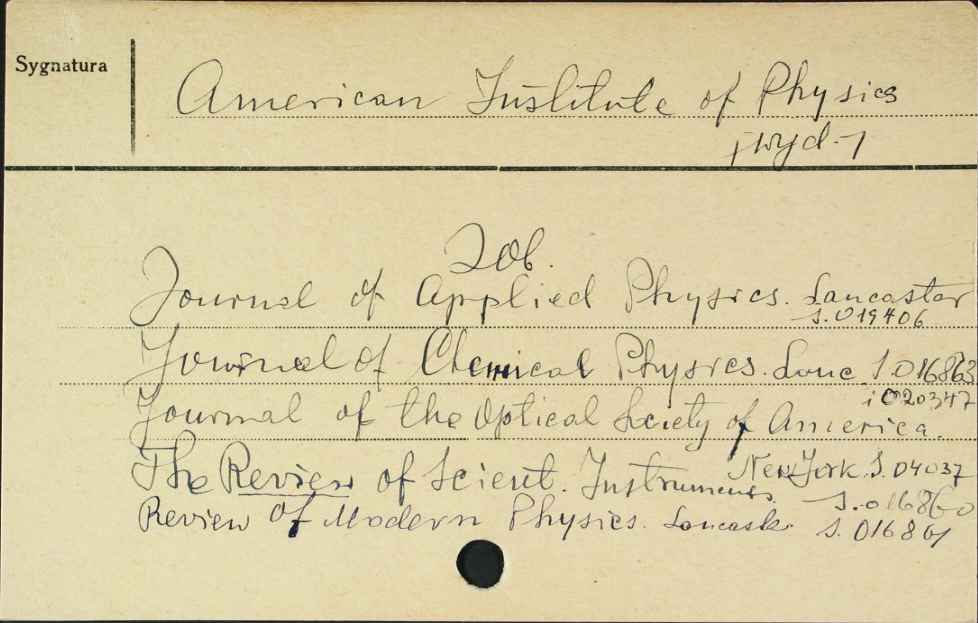 Sygnatura
American Institute of Physics
[wyd.]
Zob.
Journal of Applied Physics. Lancaster
S. 019406
Journal of Chemical Physics. Lanc. S 016863
i 020347
Journal of the Optical Society of America.
New York S. 04037
The Review of Scient. Instruments.
S. 016860
Review of Modern Physics. Lancast. S. 016861